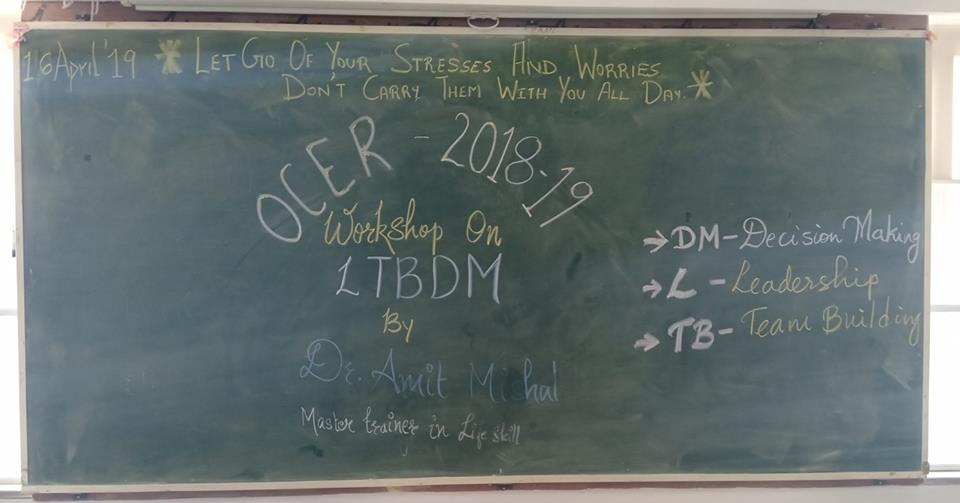 16 April'19 * LET GO OF YOUR STRESSES AND WORRIES
DON'T CARRY THEM WITH YOU ALL DAY. *
OCER - 2018-19
Workshop On
LTBDM
By
Dr. Amit Mishal
Master trainer in Life skill
→ DM - Decision Making
→ L - Leadership
→ TB - Team Building